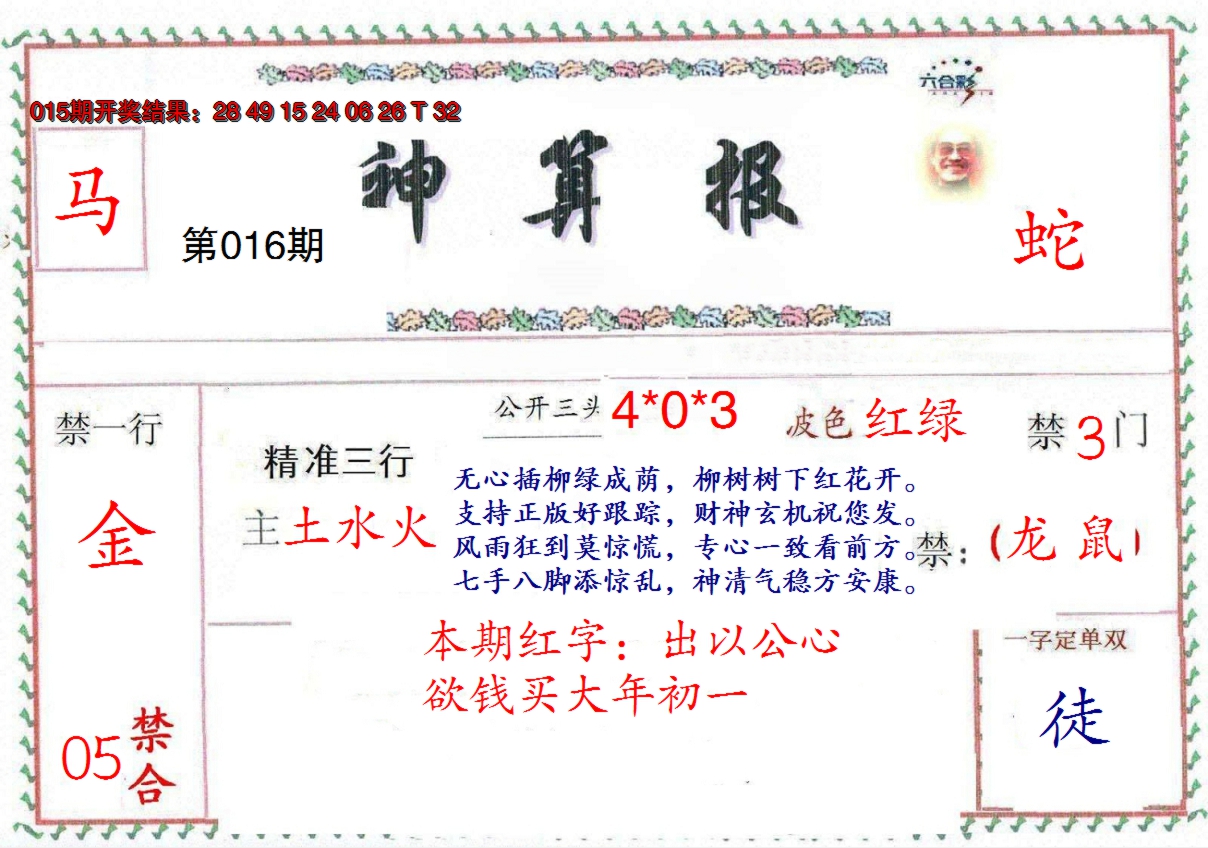 六合彩
015期开奖结果：28 49 15 24 06 26 T 32
神算报
马
第016期
蛇
禁一行
金
05
禁合
精准三行
主土水火
公开三头 4*0*3
波色 红绿
禁3门
禁：(龙 鼠)
无心插柳绿成荫，柳树树下红花开。
支持正版好跟踪，财神玄机祝您发。
风雨狂到莫惊慌，专心一致看前方。
七手八脚添惊乱，神清气稳方安康。
本期红字：出以公心
欲钱买大年初一
一字定单双
徒